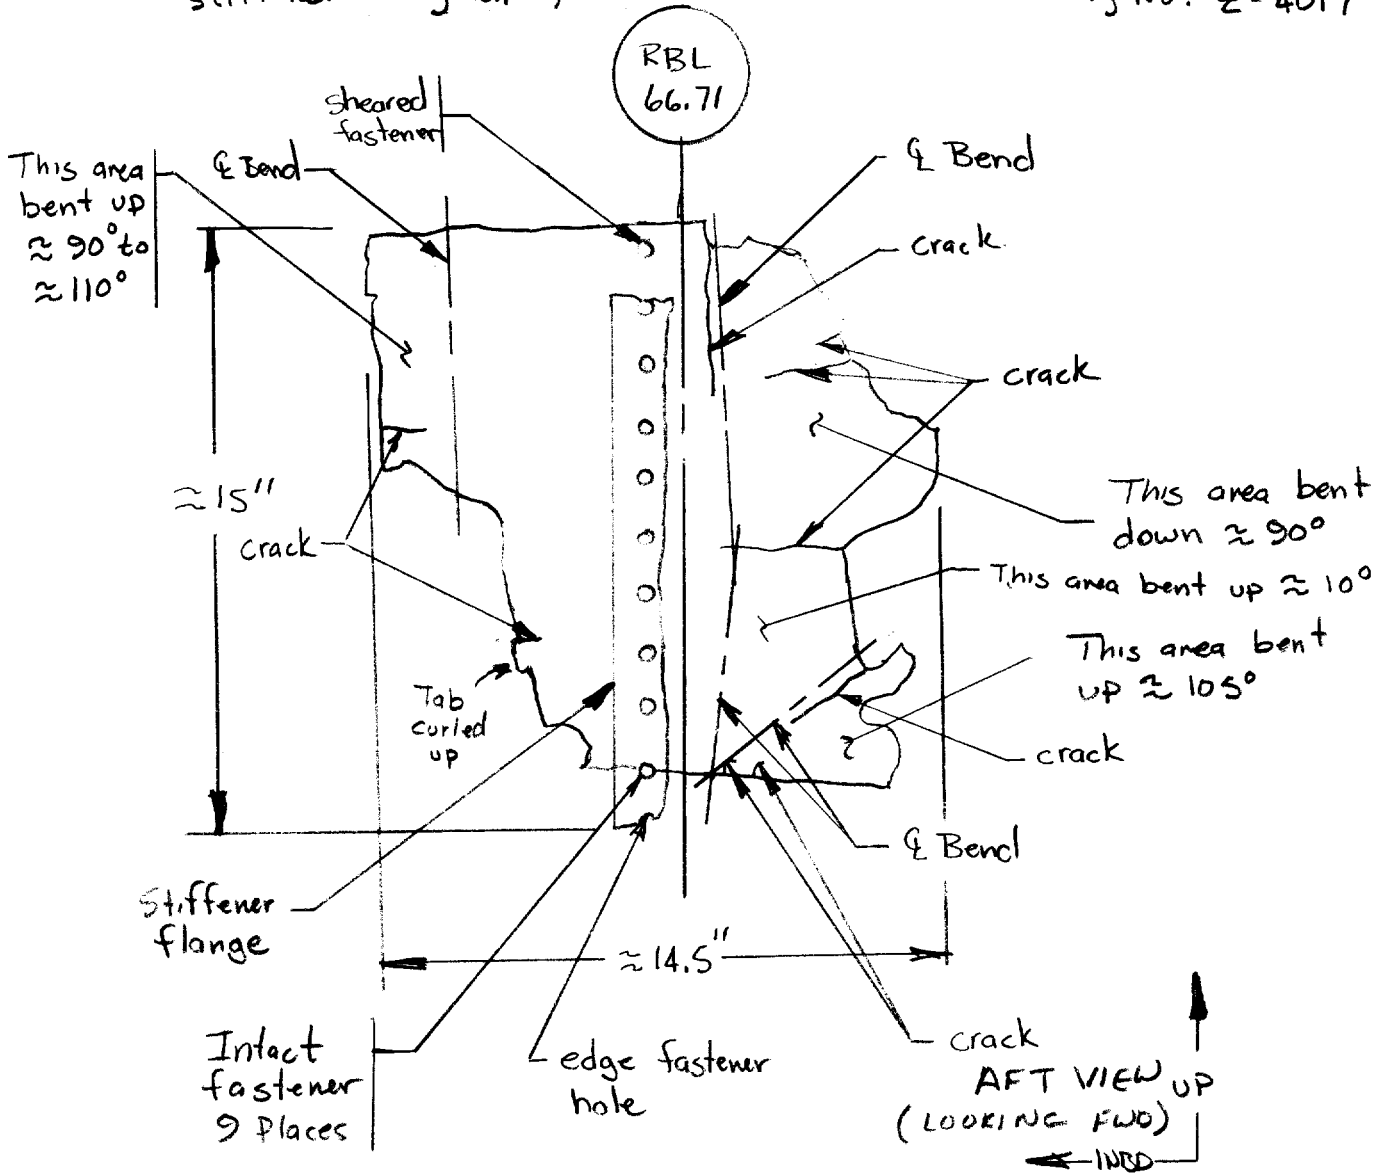 RBL
66.71
sheared
fastener
This area
bent up
≈ 90° to
≈ 110°
℄ Bend
℄ Bend
crack
crack
≈ 15"
crack
This area bent
down ≈ 90°
This area bent up ≈ 10°
This area bent
up ≈ 105°
Tab
curled
up
crack
℄ Bend
Stiffener
flange
≈ 14.5"
Intact
fastener
9 Places
edge fastener
hole
crack
AFT VIEW
(LOOKING FWD)
UP
INBD